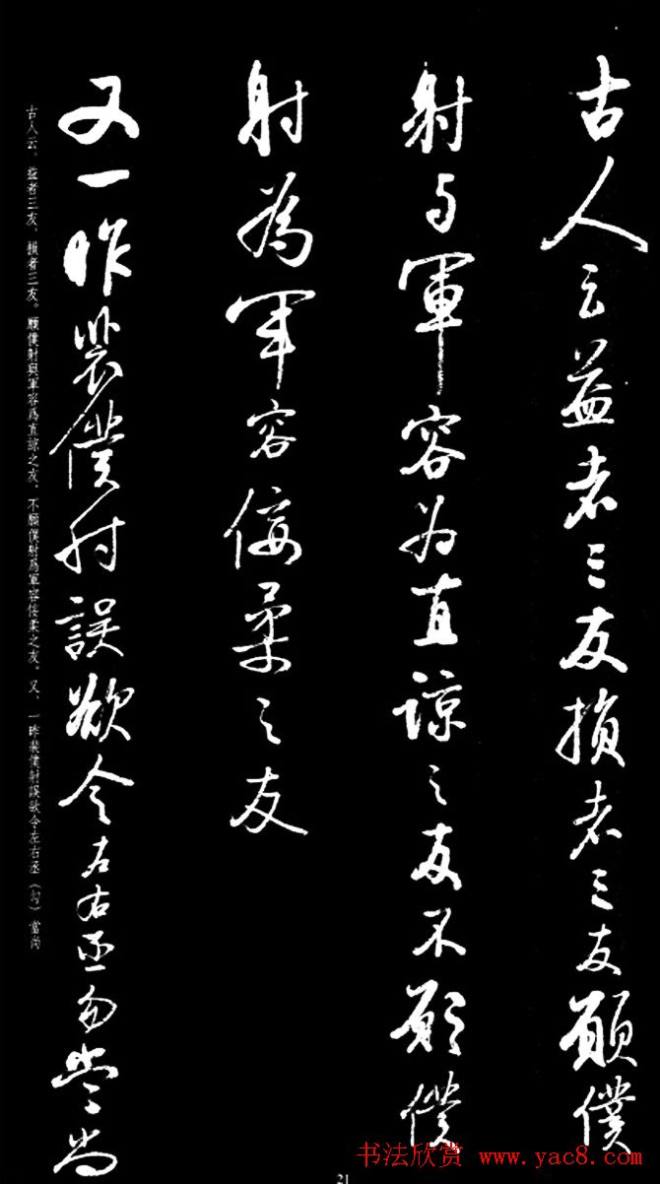 古人云益者三友損者三友願僕
射与軍容为直諒之友不願僕
射為軍容佞柔之友
又一昨裴僕射誤欲令左右丞勿當尚
古人云，益者三友，損者三友。願僕射與軍容爲直諒之友，不願僕射爲軍容佞柔之友。又，一昨裴僕射誤欲令左右丞（勾）當尚
书法欣赏 www.yac8.com
21